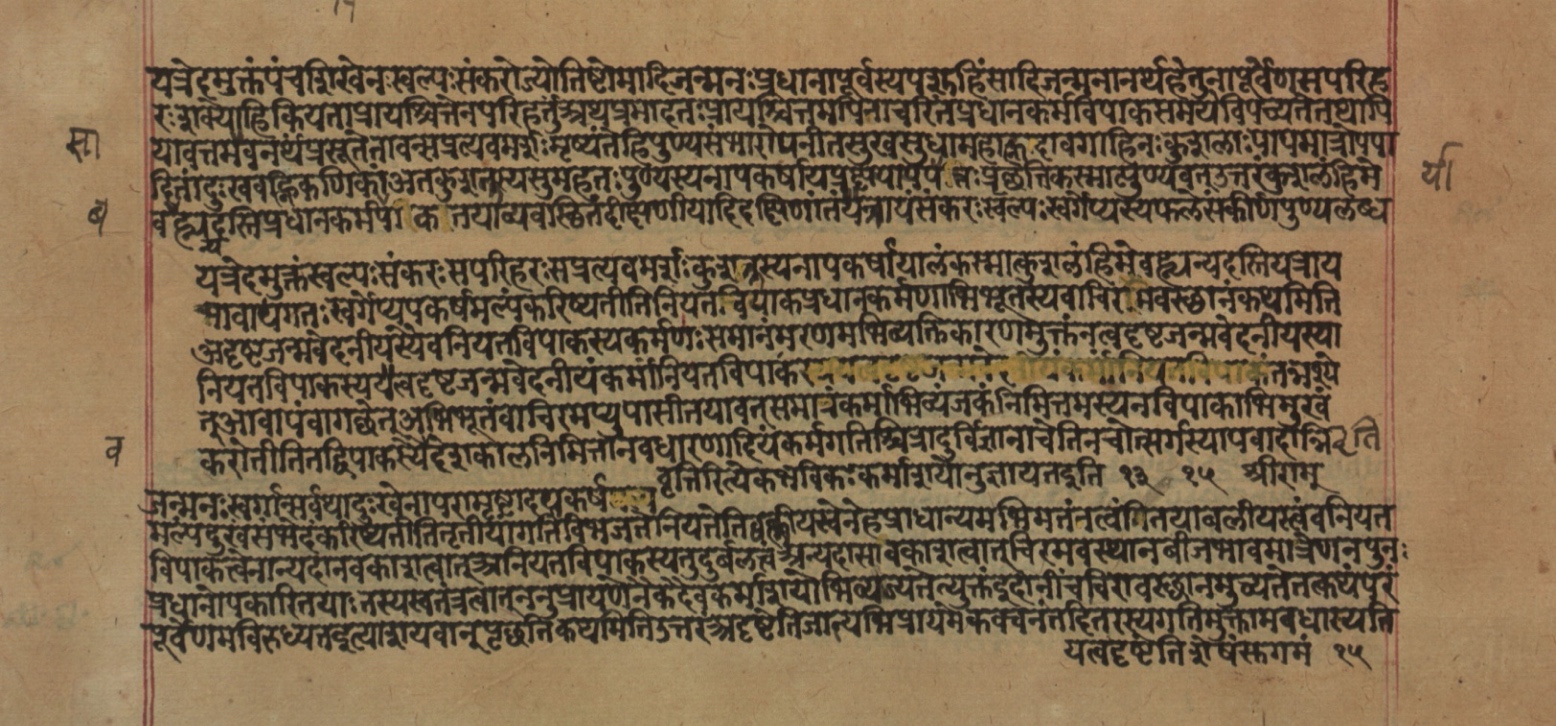 १५
यत्रेदमुक्तंपंचशिखेनःस्वल्पःसंकरोज्योतिष्टोमादिजन्मनःप्रधानापूर्वस्यपशुहिंसादिजन्मनानर्थहेतुनापूर्वेणसपरिह
रःशक्योहिकियताप्रायश्चित्तेनपरिहर्तुंअथप्रमादतःप्रायश्चित्तमपिनाचरितंप्रधानकर्मविपाकसमयेविपच्यतेतथापि
सा
यावत्तमेवनर्थंप्रसूतेतावन्सप्रत्यवमर्शःमृष्यंतेहिपुण्यसंभारोपनीतसुखसुधामहाह्रदावगाहिनःकुशलाःपापमात्रोपपा
र्या
दितांदुःखवह्निकणिकांअतकुशलस्यसुमहतःपुण्यस्यनापकर्षायपृच्छतिकस्मात्पुण्यवतउत्तरंकुशलंहिमे
ब
बह्वन्यदस्तिप्रधानकर्मतयाव्यवस्थितंदीक्षणीयादिदक्षिणांतंयत्रायंसंकरःस्वल्पःस्वर्गेप्यस्यफलेसंकीर्णपुण्यलब्ध
यत्रेदमुक्तंस्वल्पःसंकरःसपरिहरःसप्रत्यवमर्शःकुशलस्यनापकर्षायालंकस्मात्कुशलंहिमेबह्वन्यदस्तियत्राय
मावापंगतःस्वर्गेप्यपकर्षमल्पंकरिष्यतीतिनियतविपाकप्रधानकर्मणाभिभूतस्यवाचिरमवस्थानंकथमिति
अदृष्टजन्मवेदनीयस्यैवनियतविपाकस्यकर्मणःसमानंमरणमभिव्यक्तिकारणमुक्तंनत्वदृष्टजन्मवेदनीयस्या
नियतविपाकस्ययत्वदृष्टजन्मवेदनीयंकर्मानियतविपाकंतन्नश्ये
त्आवापंवागच्छेत्अभिभूतंवाचिरमप्युपासीतयावत्समानंकर्माभिव्यंजकंनिमित्तमस्यनविपाकाभिमुखं
व
करोतीतितद्विपाकस्यैदेशकालनिमित्तानवधारणादियंकर्मगतिश्चित्रादुर्विज्ञानाचेतिनचोत्सर्गस्यापवादान्निवृत्ति
वृत्तिरित्येकभविकःकर्माशयोनुज्ञायतइति १३ १५ श्रीराम्
जन्मनःस्वर्गात्सर्वथादुःखेनापरामृष्टादपकर्ष
मल्पदुःखसंभेदंकरिष्यतीतितृतीयांगतिंविभजतेनियतेतिबलीयस्त्वेनेहप्राधान्यमभिमतंनत्वंगितयाबलीयस्त्वंचनियत
विपाकत्वेनान्यदानवकाशत्वात्अनियतविपाकस्यतुदुर्बलत्वंअन्यदासावकाशत्वात्चिरमवस्थानंबीजभावमात्रेणनपुनः
प्रधानोपकारितयाःतस्यस्वतंत्रत्वात्ननुप्रायणेनैकदैवकर्माशयोभिव्यज्यतेत्युक्तंइदानींचचिरावस्थानमुच्यतेतत्कथंपरं
पूर्वेणमविरुध्यतइत्याशयवान्पृच्छतिकथमितिउत्तरंअदृष्टेतिजात्यभिप्रायमेकवचनंतदितरस्यगतिमुक्तामवधास्यति
यत्वदृष्टेतिशेषंसुगमं १५